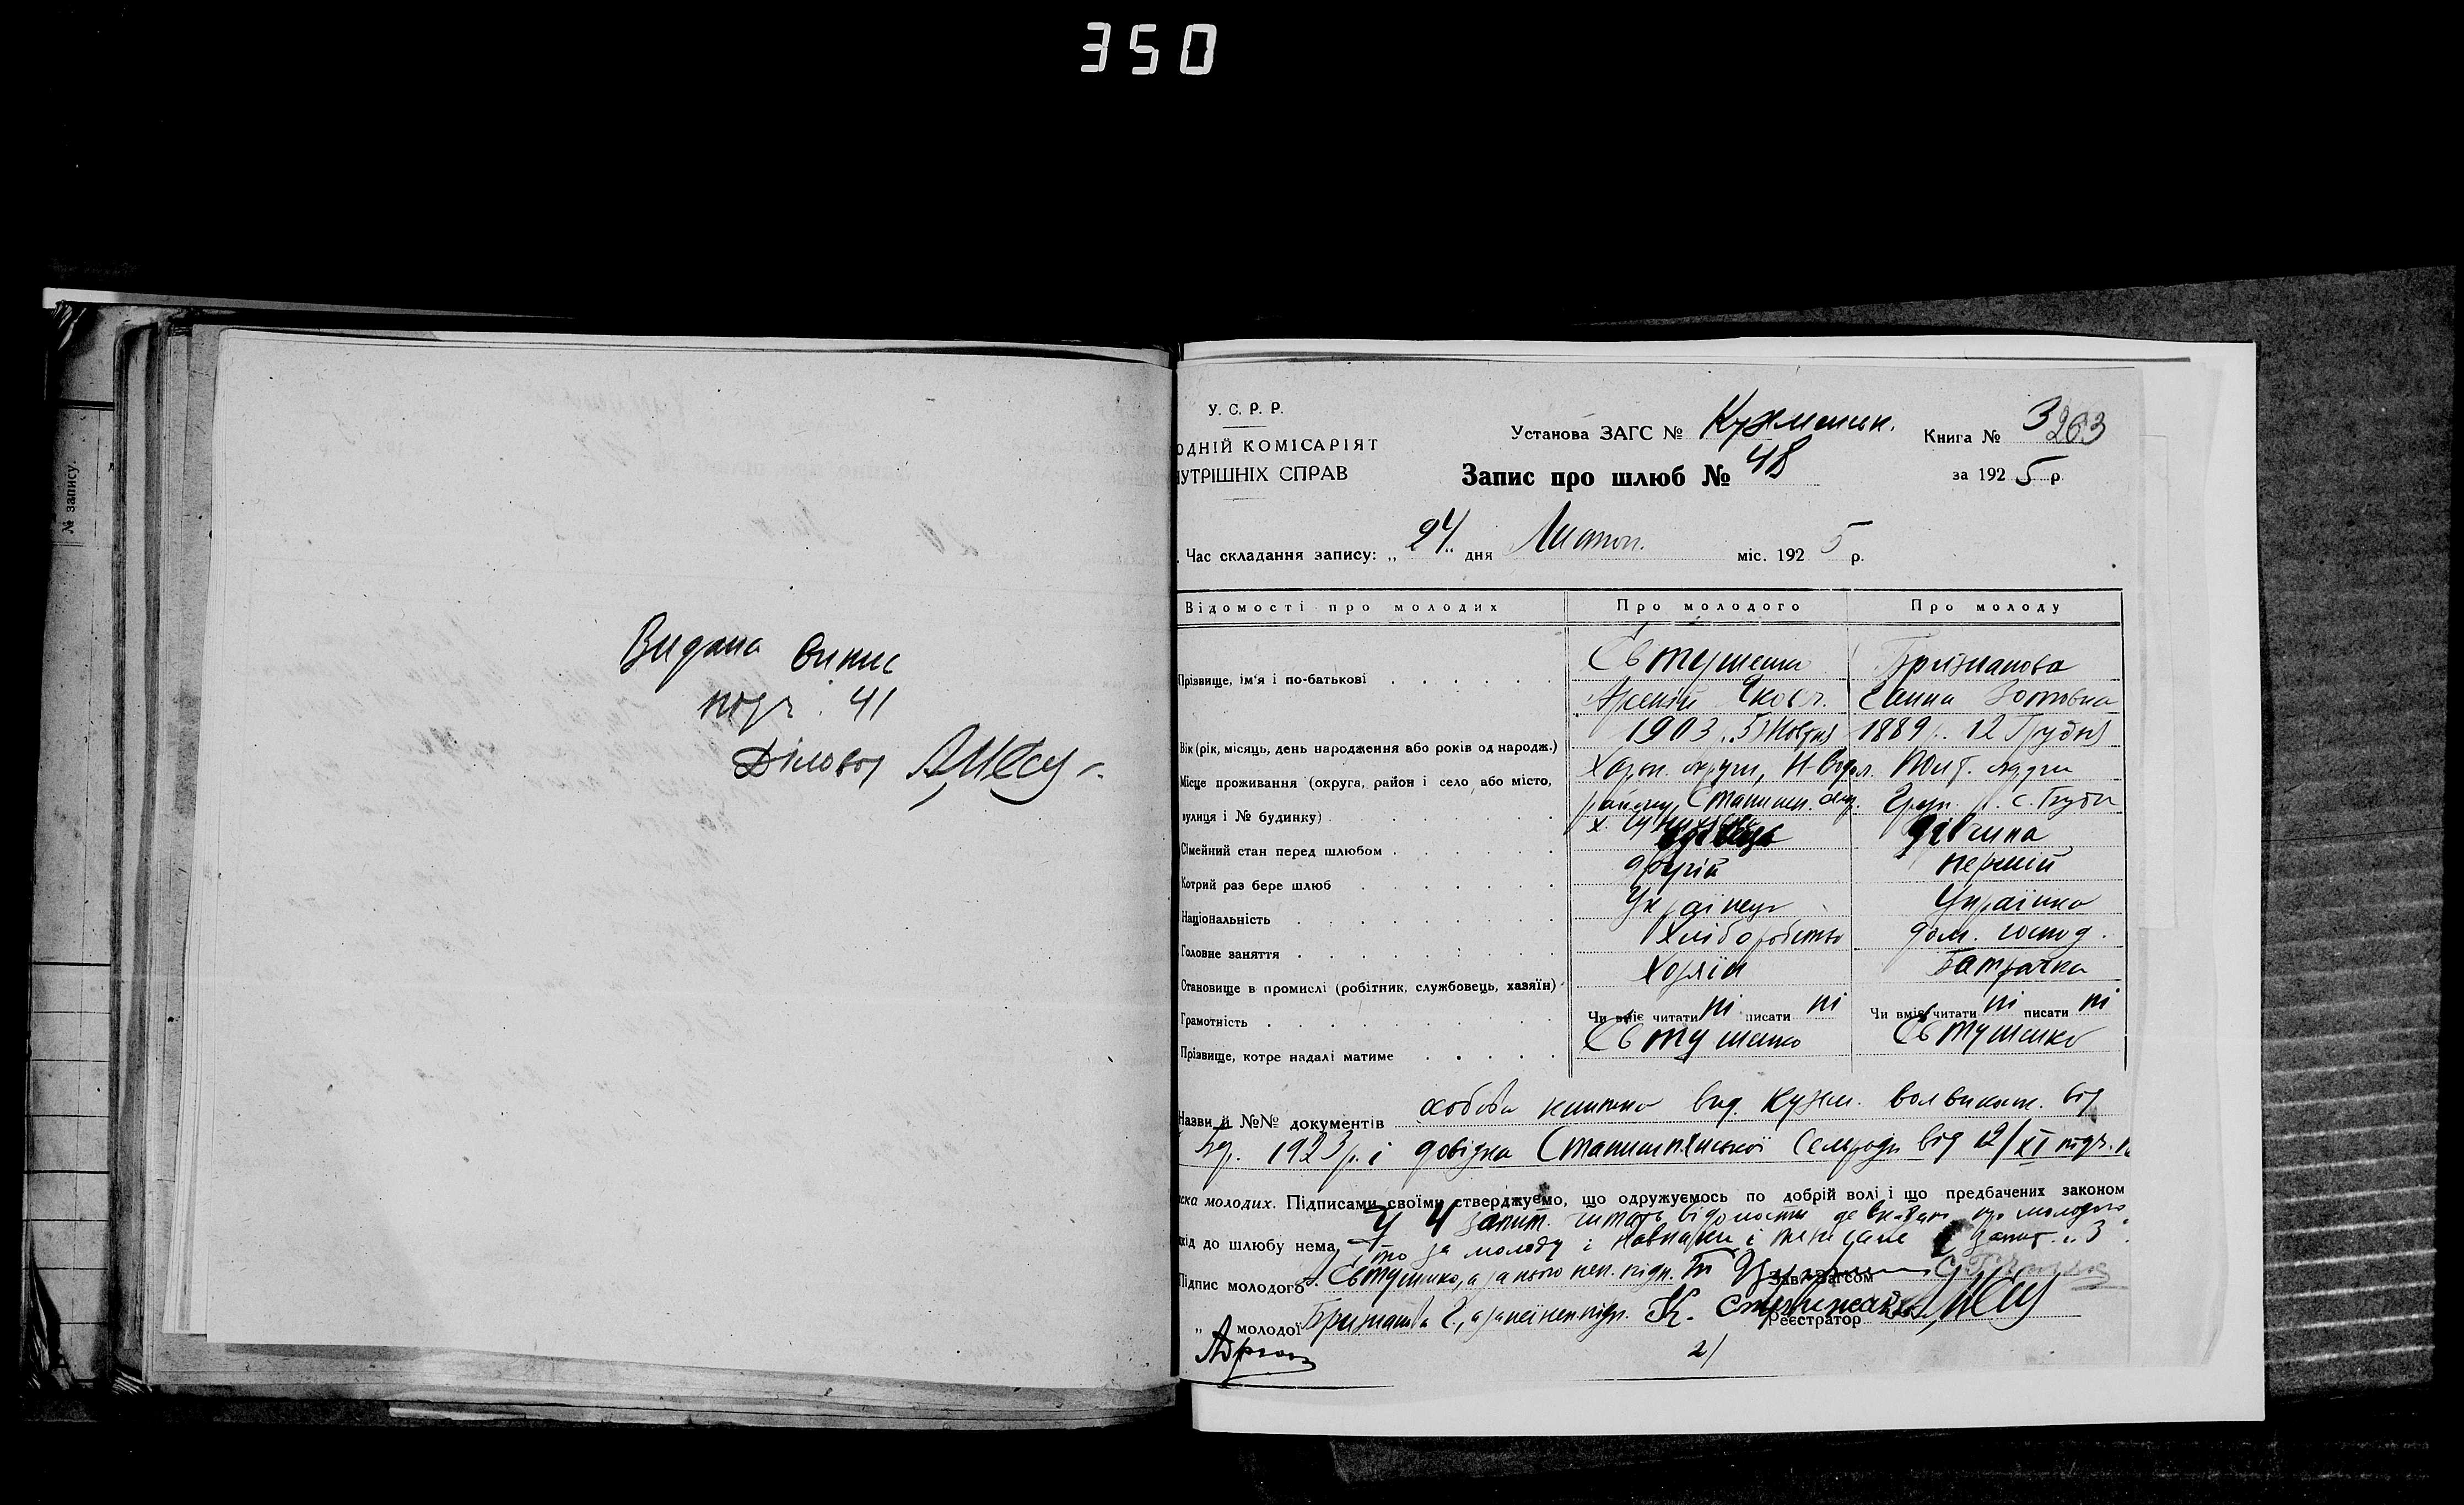 350
№ запису.
Видана випис
под. 41
Діловод
У. С. Р. Р.
ОДНІЙ КОМІСАРІЯТ
НУТРІШНІХ СПРАВ
Установа ЗАГС №
Книга № 3 263
Запис про шлюб № 48
за 1925 р.
Час складання запису: „24" дня Листоп. міс. 1925 р.
Відомості про молодих Про молодого Про молоду
Прізвище, ім'я і по-батькові
Євтушенко Брижанова
Яковл. Ганна Зотовна
Вік (рік, місяць, день народження або років од народж.) 1903. 5 Жовтня 1889 р. 12 Грудня
Місце проживання (округа, район і село або місто, Харк. округи, Н-Водол. Полт. округи
вулиця і № будинку) району, Станич.
Сімейний стан перед шлюбом дівчина
Котрий раз бере шлюб другій першій
Національність Українець Українка
Головне заняття Хліборобство дом. господ.
Становище в промислі (робітник, службовець, хазяїн) Хозяїн батрачка
Грамотність Чи вміє читати ні писати ні Чи вміє читати ні писати ні
Прізвище, котре надалі матиме Євтушенко Євтушенко
Назви й №№ документів особова книжка вид. волвиконк. від
1923 р. і довідка Сельради від 12/XI
ска молодих. Підписами своїми стверджуємо, що одружуємось по добрій волі і що предбачених законом
У 4 запит. читать відомости де вказано про молодого
хід до шлюбу нема, то за молоду і навпаки і запит. „3"
Підпис молодого Євтушенко, а за нього неп. підп. Зав. Загсом
„ молодої Брижанова Г., а за неї неп. підп. К. Реєстратор
2/